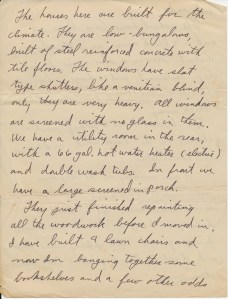 The houses here are built for the
climate. They are low bungalows,
built of steel reinforced concrete with
tile floors. The windows have slat
type shutters, like a venitian blind,
only they are very heavy. All windows
are screened with no glass in them.
We have a utility room in the rear,
with a 66 gal. hot water heater (electric)
and double wash tubs. In front we
have a large screened in porch.
They just finished repainting
all the woodwork before I moved in.
I have built 4 lawn chairs and
now am banging together some
bookshelves and a few other odds